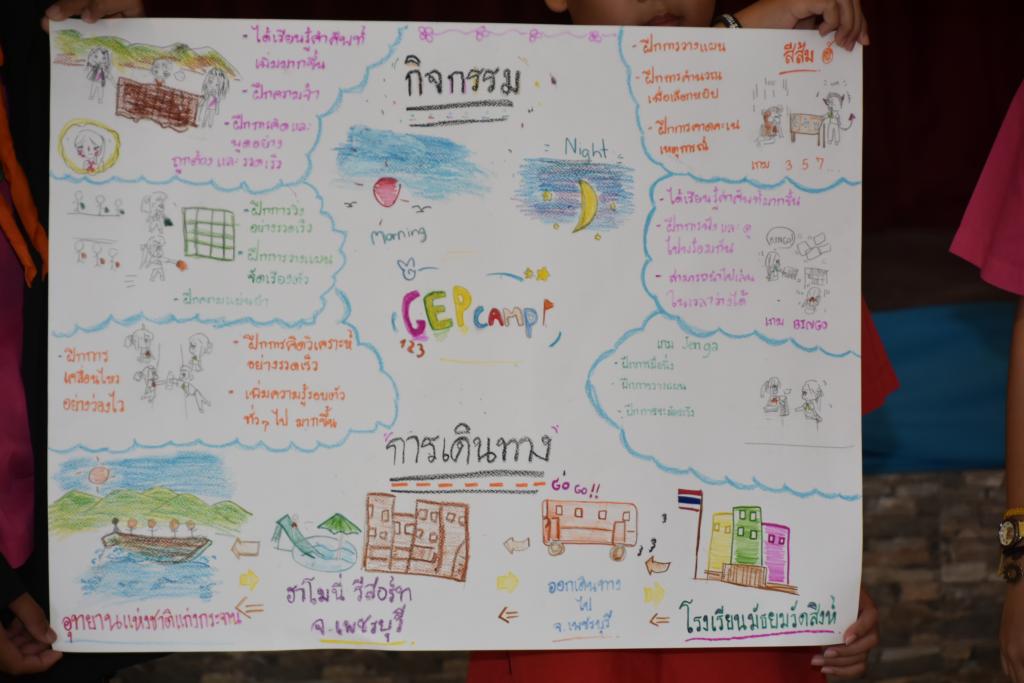 กิจกรรม
- ได้เรียนรู้คำศัพท์
เพิ่มมากขึ้น
- ฝึกความจำ
- ฝึกการคิดและ
พูดอย่าง
ถูกต้อง และ รวดเร็ว
- ฝึกการวิ่ง
อย่างรวดเร็ว
- ฝึกการวางแผน
จัดเรียงตัว
- ฝึกความแม่นยำ
- ฝึกการ
เคลื่อนไหว
อย่างว่องไว
- ฝึกการคิดวิเคราะห์
อย่างรวดเร็ว
- เพิ่มความรู้รอบตัว
ทั่วๆ ไป มากขึ้น
Morning
Night
GEP CAMP
123
- ฝึกการวางแผน
- ฝึกการคำนวณ
เพื่อเลือกหยิบ
- ฝึกการคาดคะเน
เหตุการณ์
สีส้ม
เกม 3 5 7
- ได้เรียนรู้คำศัพท์มากขึ้น
- ฝึกการฟัง และ ดู
ไปพร้อมกัน
- สามารถนำไปเล่น
ในเวลาว่างได้
BINGO
เกม BINGO
เกม Jenga
- ฝึกการมือนิ่ง
- ฝึกการวางแผน
- ฝึกการระมัดระวัง
"การเดินทาง"
GO GO!!
อุทยานแห่งชาติแก่งกระจาน
ฮาโมนี่ รีสอร์ท
จ.เพชรบุรี
ออกเดินทาง
ไป
จ.เพชรบุรี
โรงเรียนมัธยมวัดสิงห์